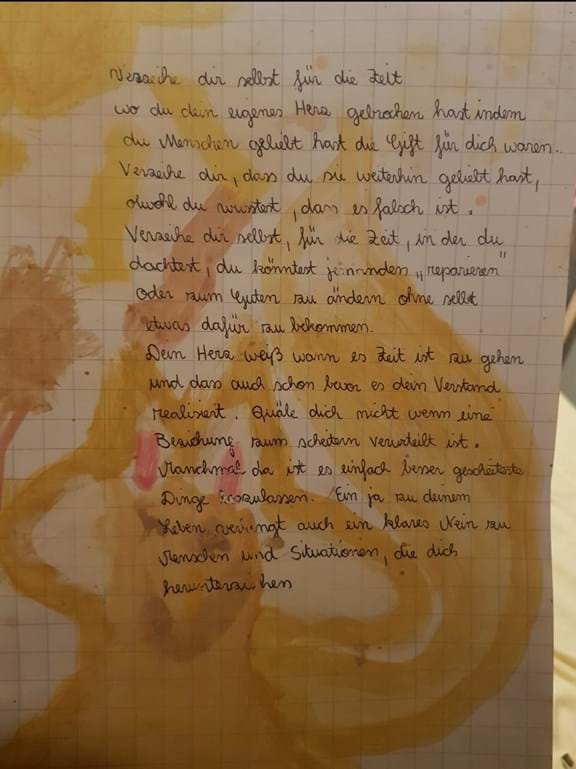 Verzeihe dir selbst für die Zeit
wo du dein eigenes Herz gebrochen hast indem
du Menschen geliebt hast die Gift für dich waren..
Verzeihe dir, dass du sie weiterhin geliebt hast,
obwohl du wusstest, dass es falsch ist.
Verzeihe dir selbst, für die Zeit, in der du
dachtest, du könntest jemanden „reparieren"
oder zum Guten zu ändern ohne selbst
etwas dafür zu bekommen.
Dein Herz weiß wann es Zeit ist zu gehen
und dass auch schon bevor es dein Verstand
realisiert. Quäle dich nicht wenn eine
Beziehung zum scheitern verurteilt ist.
Manchmal da ist es einfach besser gescheiterte
Dinge loszulassen. Ein ja zu deinem
Leben verlangt auch ein klares Nein zu
Menschen und Situationen, die dich
herunterziehen